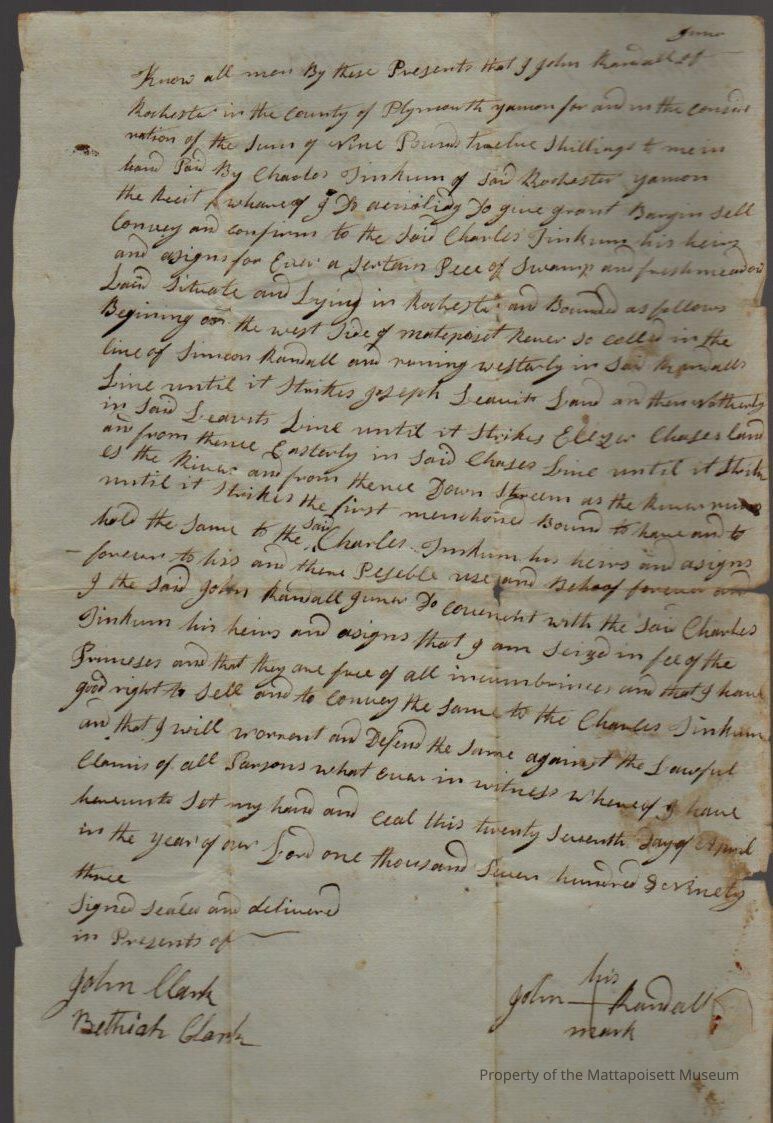 Juner
Know all men By these Presents that I John Randall of
Rochester in the County of Plymouth yamon for and in the consid
ration of the Sum of Nine Pound twelve Shillings to me in
hand Paid By Charles Tinkum of said Rochester yamon
the Recit whareof I Do acnolidg Do give grant Bargin sell
Convey and confirm to the said Charles Tinkum his heirs
and asigns for Ever a Sertain Peec of Swamp and freshmeadow
Land Situate and Lying in Rochester and Bounded as follows
Begining on the west Side of matepoiset River so called in the
line of Simeon Randall and runing westerly in said Randalls
Line until it Strikes Joseph Leavits Land and then Notherly
in said Leavits Line until it Strikes Elezer Chases land
and from thence Easterly in said Chases Line until it Strik
es the River and from thence Down Streem as the River runs
until it Strikes the first menchoned Bound to have and to
hold the same to the said Charles Tinkum his heirs and asigns
forever to his and there Peseble use and Behoof forever and
I the said John Randall Juner Do covenent with the said Charles
Tinkum his heirs and asigns that I am Seized in fee of the
Primeses and that they are free of all incumbrinces and that I have
good right to sell and to convey the same to the Charles Tinkum
and that I will worrent and Defend the same against the Lawful
Claims of all Parsons what ever in witness whereof I have
hereunto Set my hand and Ceal this twenty Seventh day of April
in the year of our Lord one thousand Seven hundred & Ninety
three
Signed sealed and delivered
in Presents of
John Clark
Bethiah Clark
his
John Randall
mark
Property of the Mattapoisett Museum